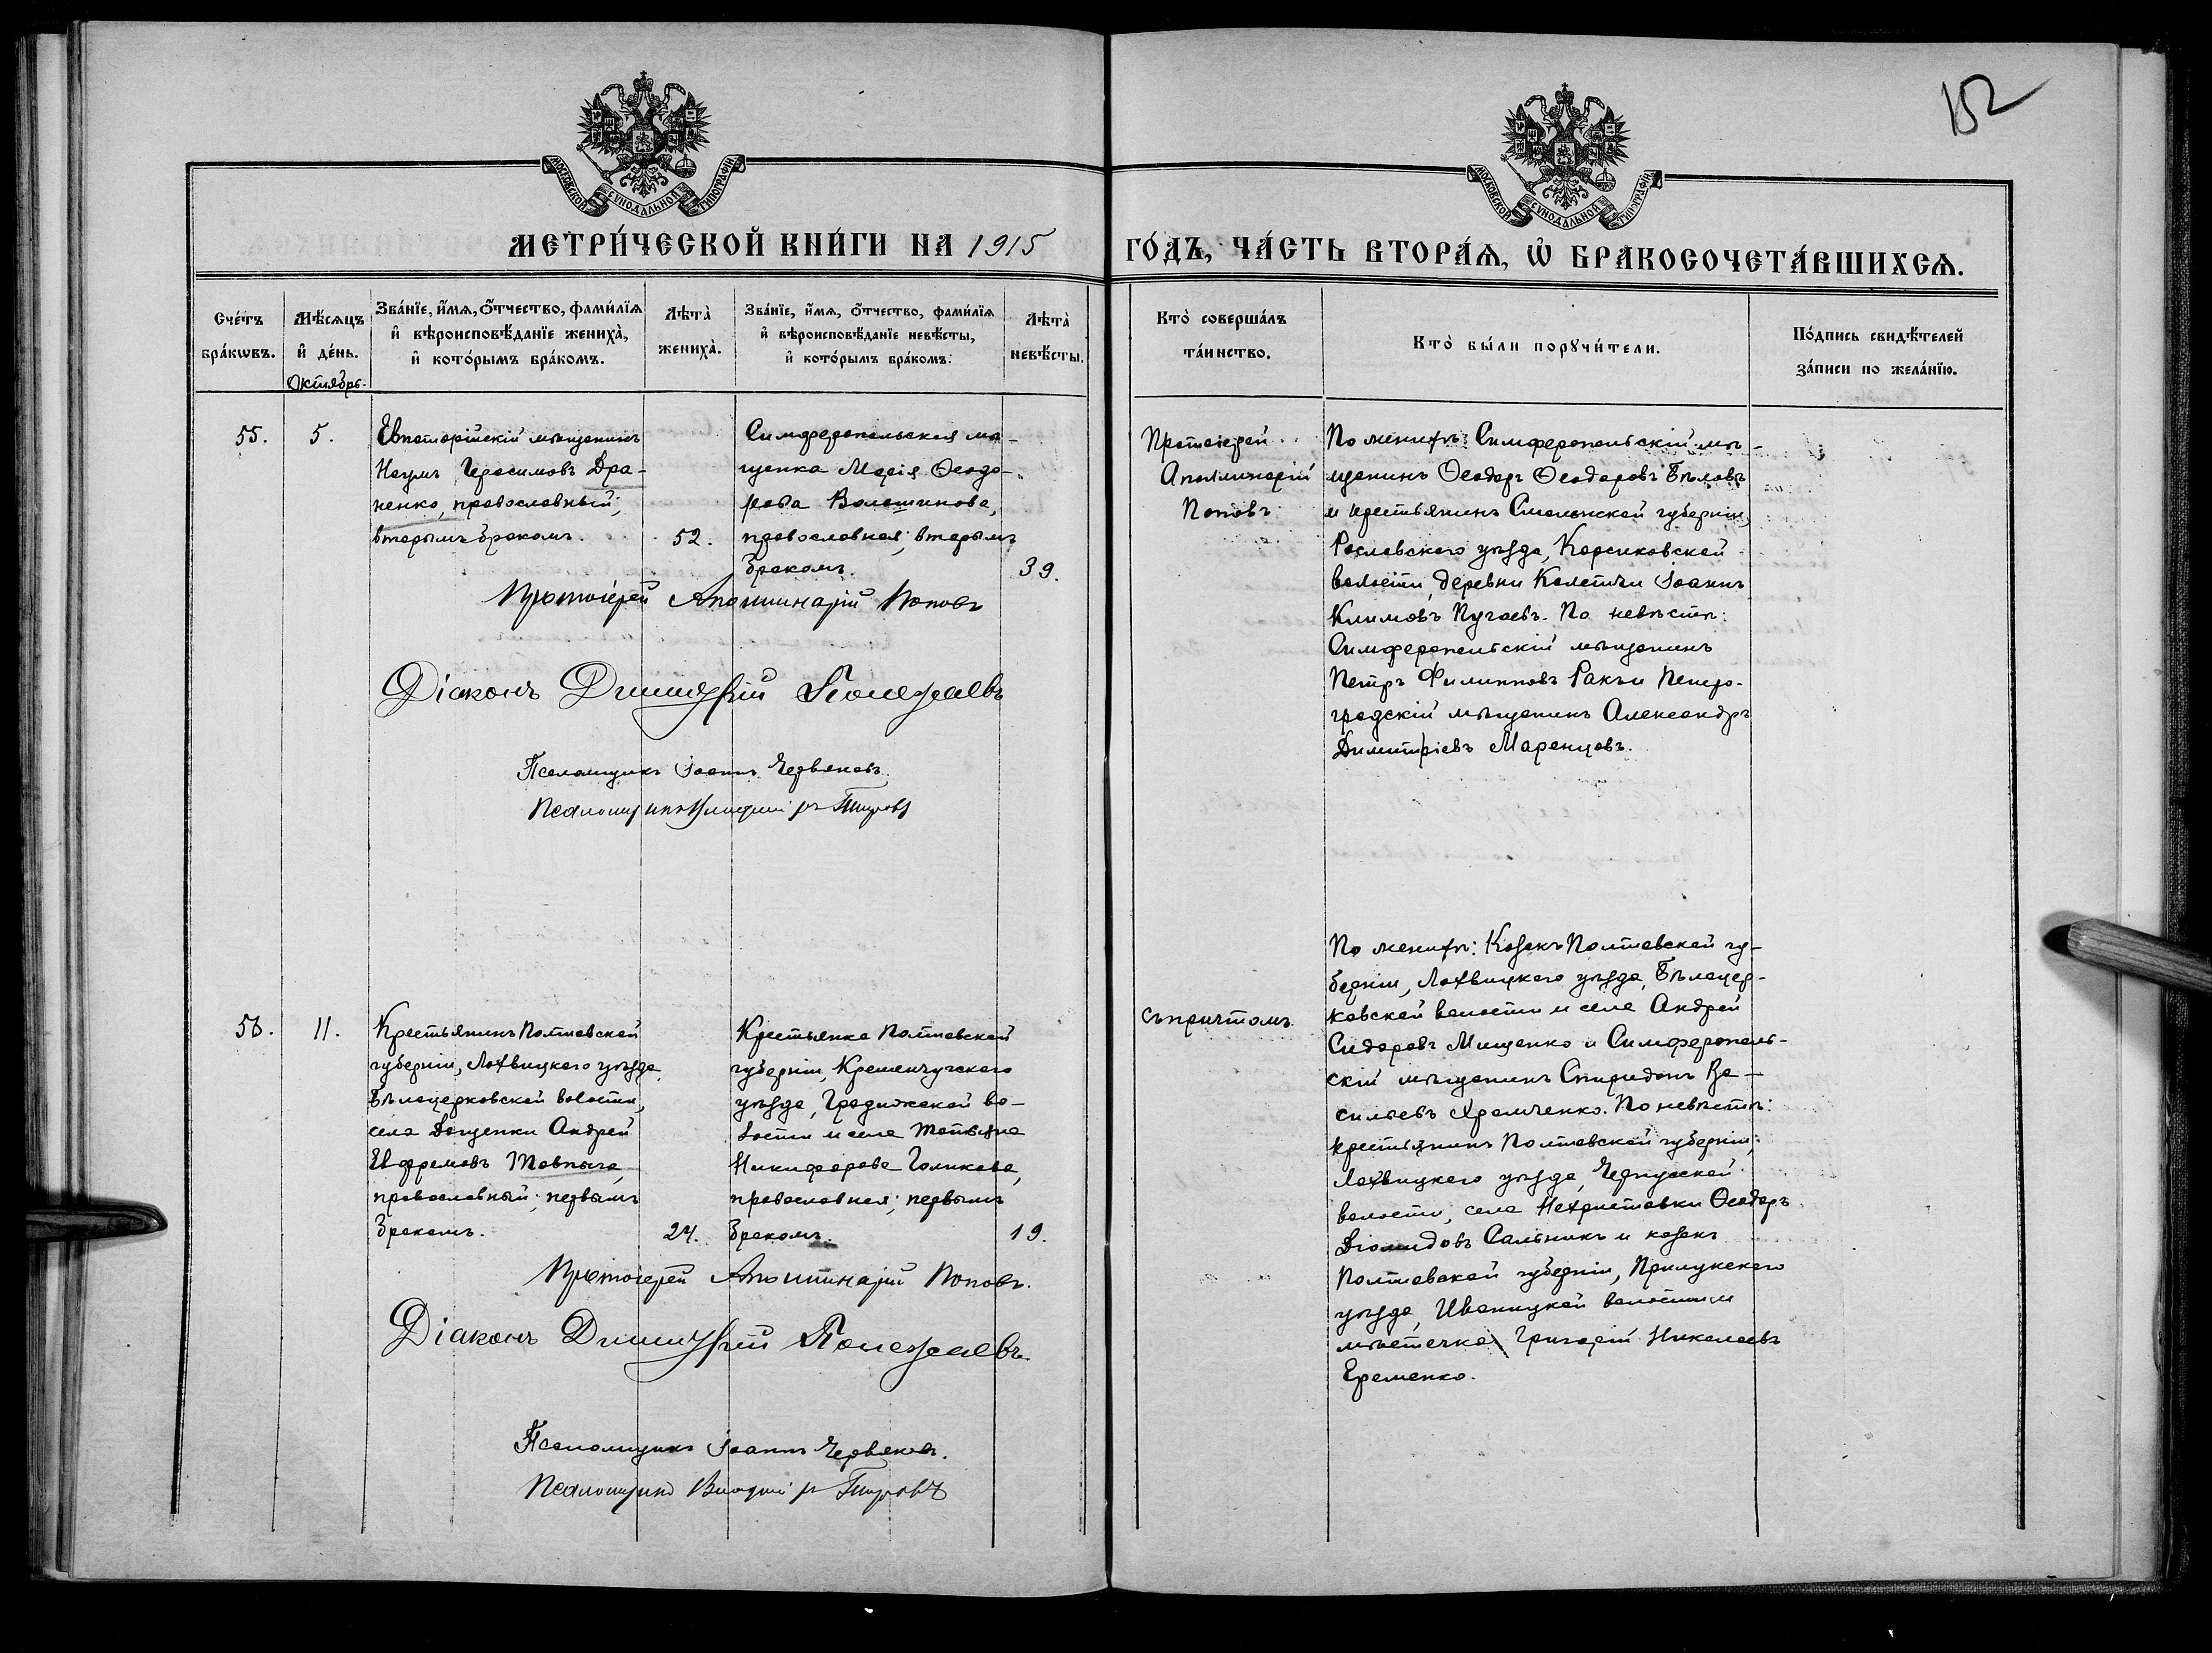 152
МОСКОВСКОЙ СѴНОДАЛЬНОЙ ТИПОГРАФІИ
МОСКОВСКОЙ СѴНОДАЛЬНОЙ ТИПОГРАФІИ
МЕТРИ́ЧЕСКОЙ КНИ́ГИ НА 1915
ГО́ДЪ, ЧА́СТЬ ВТОРА́Ѧ, Ѡ҆ БРАКОСОЧЕТА́ВШИХСѦ.
Сче́тъ
бра́кѡвъ.
Мѣ́сѧцъ
и҆ де́нь.
Октябрь.
Зва́нїе, и҆́мѧ, о҆́тчество, фами́лїѧ
и҆ вѣроисповѣ́данїе жениха̀,
и҆ кото́рымъ бра́комъ.
Лѣта̀
жениха̀.
Зва́нїе, и҆́мѧ, о҆́тчество, фами́лїѧ
и҆ вѣроисповѣ́данїе невѣ́сты,
и҆ кото́рымъ бра́комъ.
Лѣта̀
невѣ́сты.
Кто̀ соверша́лъ
та́инство.
Кто̀ бы́ли порꙋчи́тели.
По́дпись свидѣ́телей
за́писи по жела́нїю.
55.
5.
Евпаторійскій мѣщанинъ
Наумъ Герасимовъ Дра-
ненко, православный;
вторымъ бракомъ.
52.
Симферопольская мѣ-
щанка Марія Ѳеодо-
рова Волошинова,
православная; вторымъ
бракомъ.
39.
Протоіерей
Аполлинарій
Поповъ
По женихѣ: Симферопольскій мѣ-
щанинъ Ѳеодоръ Ѳеодоровъ Бѣловъ
и крестьянинъ Смоленской губерніи,
Рославского уѣзда, Корсиковской
волости, деревни Колетчи Іоаннъ
Климовъ Пугаевъ. По невѣстѣ:
Симферопольскій мѣщанинъ
Петръ Филипповъ Ракъ и Петро-
градскій мѣщанинъ Александръ
Димитріевъ Маренцовъ.
Протоіерей Аполлинарій Поповъ
Діаконъ Димитрій Полежаевъ
Псаломщикъ Іоаннъ Червяковъ
Псаломщикъ
56.
11.
Крестьянинъ Полтавской
губерніи, Лохвицкаго уѣзда,
Бѣлоцерковской волости,
села Доценки Андрей
Евфремовъ Товпыга,
православный; первымъ
бракомъ.
24.
Крестьянка Полтавской
губерніи, Кременчугского
уѣзда, Градижской во-
лости и села Татьяна
Никифорова Голикова,
православная; первымъ
бракомъ.
19.
съ причтомъ.
По женихѣ: Козакъ Полтавской гу-
берніи, Лохвицкаго уѣзда, Бѣлоцер-
ковской волости и села Андрей
Сидоровъ Мищенко и Симферополь-
скій мѣщанинъ Спиридонъ Ва-
сильевъ Храмченко. По невѣстѣ:
крестьянинъ Полтавской губерніи,
Лохвицкаго уѣзда, Чернухской
волости, села Нехристовки Ѳеодоръ
Діомидовъ Сальникъ и козакъ
Полтавской губерніи, Прилукского
уѣзда, Иваницкой волости и
мѣстечка Григорій Николаевъ
Еременко.
Протоіерей Аполлинарій Поповъ.
Діаконъ Димитрій Полежаевъ
Псаломщикъ Іоаннъ Червяковъ.
Псаломщикъ